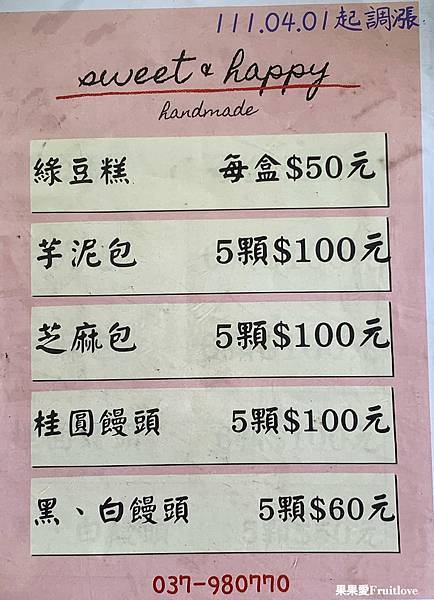 111.04.01起調漲
sweet & happy
handmade
綠豆糕 每盒$50元
芋泥包 5顆$100元
芝麻包 5顆$100元
桂圓饅頭 5顆$100元
黑、白饅頭 5顆$60元
037-980770
果果愛Fruitlove